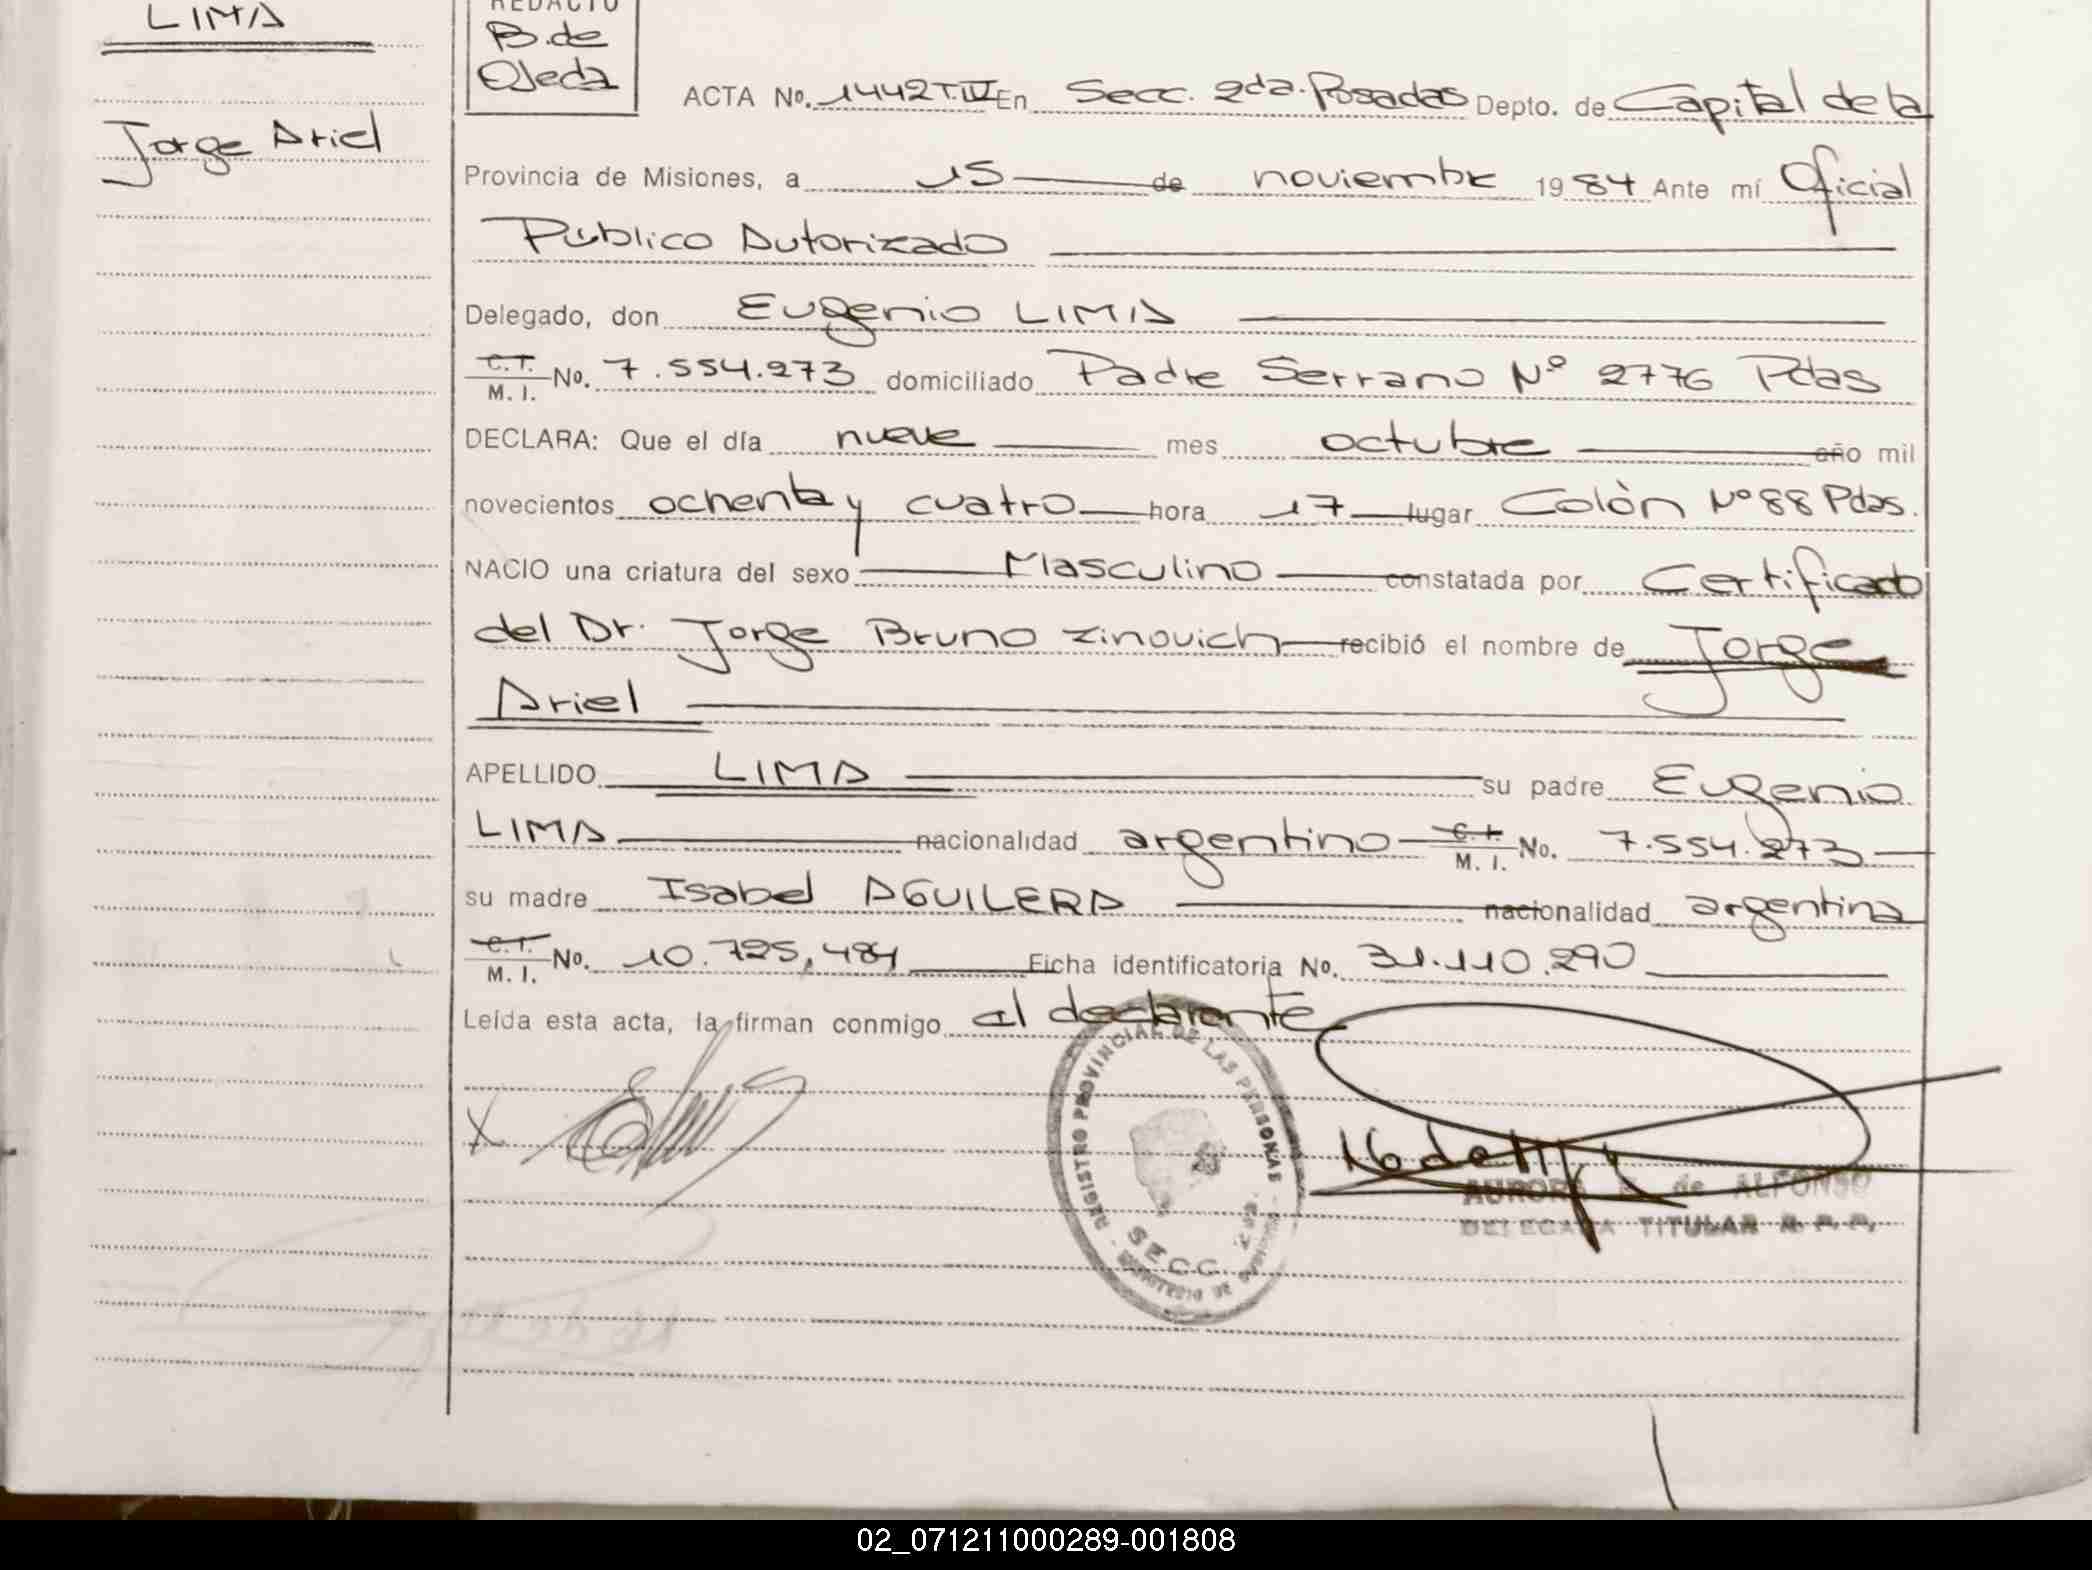 LIMA
Jorge Ariel
REDACTO
B. de
Ojeda
ACTA No. 1442 T.IV En Secc. 2da. Posadas Depto. de Capital de la
Provincia de Misiones, a 15 de noviembre 1984 Ante mí Oficial
Público Autorizado
Delegado, don Eugenio LIMA
C.I. M. I. No. 7.554.273 domiciliado Padre Serrano Nº 2776 Pdas
DECLARA: Que el día nueve mes octubre año mil
novecientos ochenta y cuatro hora 17 lugar Colón Nº 88 Pdas.
NACIO una criatura del sexo Masculino constatada por Certificado
del Dr. Jorge Bruno Zinovich recibió el nombre de Jorge
Ariel
APELLIDO LIMA su padre Eugenio
LIMA nacionalidad argentino C.I. M. I. No. 7.554.273
su madre Isabel AGUILERA nacionalidad argentina
C.I. M. I. No. 10.725.484 Ficha identificatoria No. 31.110.290
Leída esta acta, la firman conmigo el declarante
X
REGISTRO PROVINCIAL DE LAS PERSONAS
SECC. 2da.
AURORA de ALFONSO
DELEGADA TITULAR R. P. P.
02_071211000289-001808